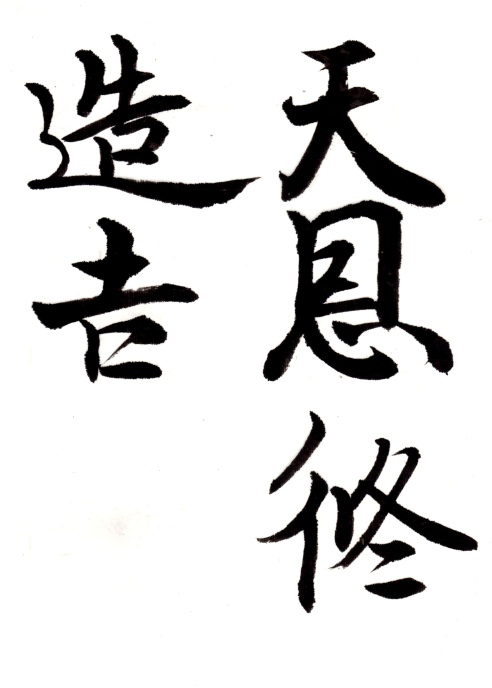 天恩修
造吉